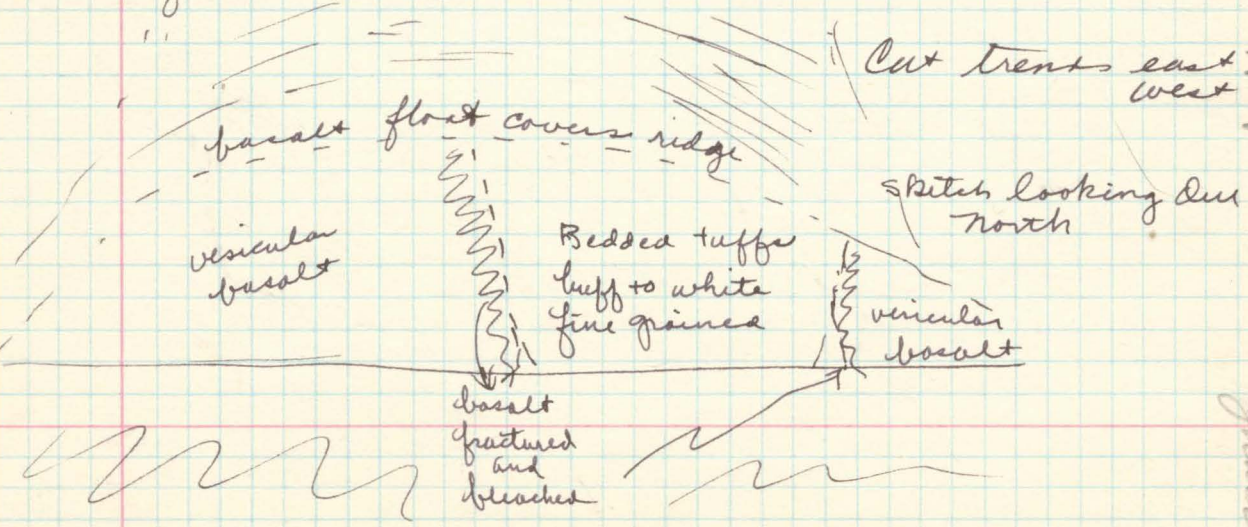 Cut trends east-
west
basalt float covers ridge
sketch looking due
north
vesicular
basalt
Bedded tuffs
buff to white
fine grained
vesicular
basalt
basalt
fractured
and
bleached